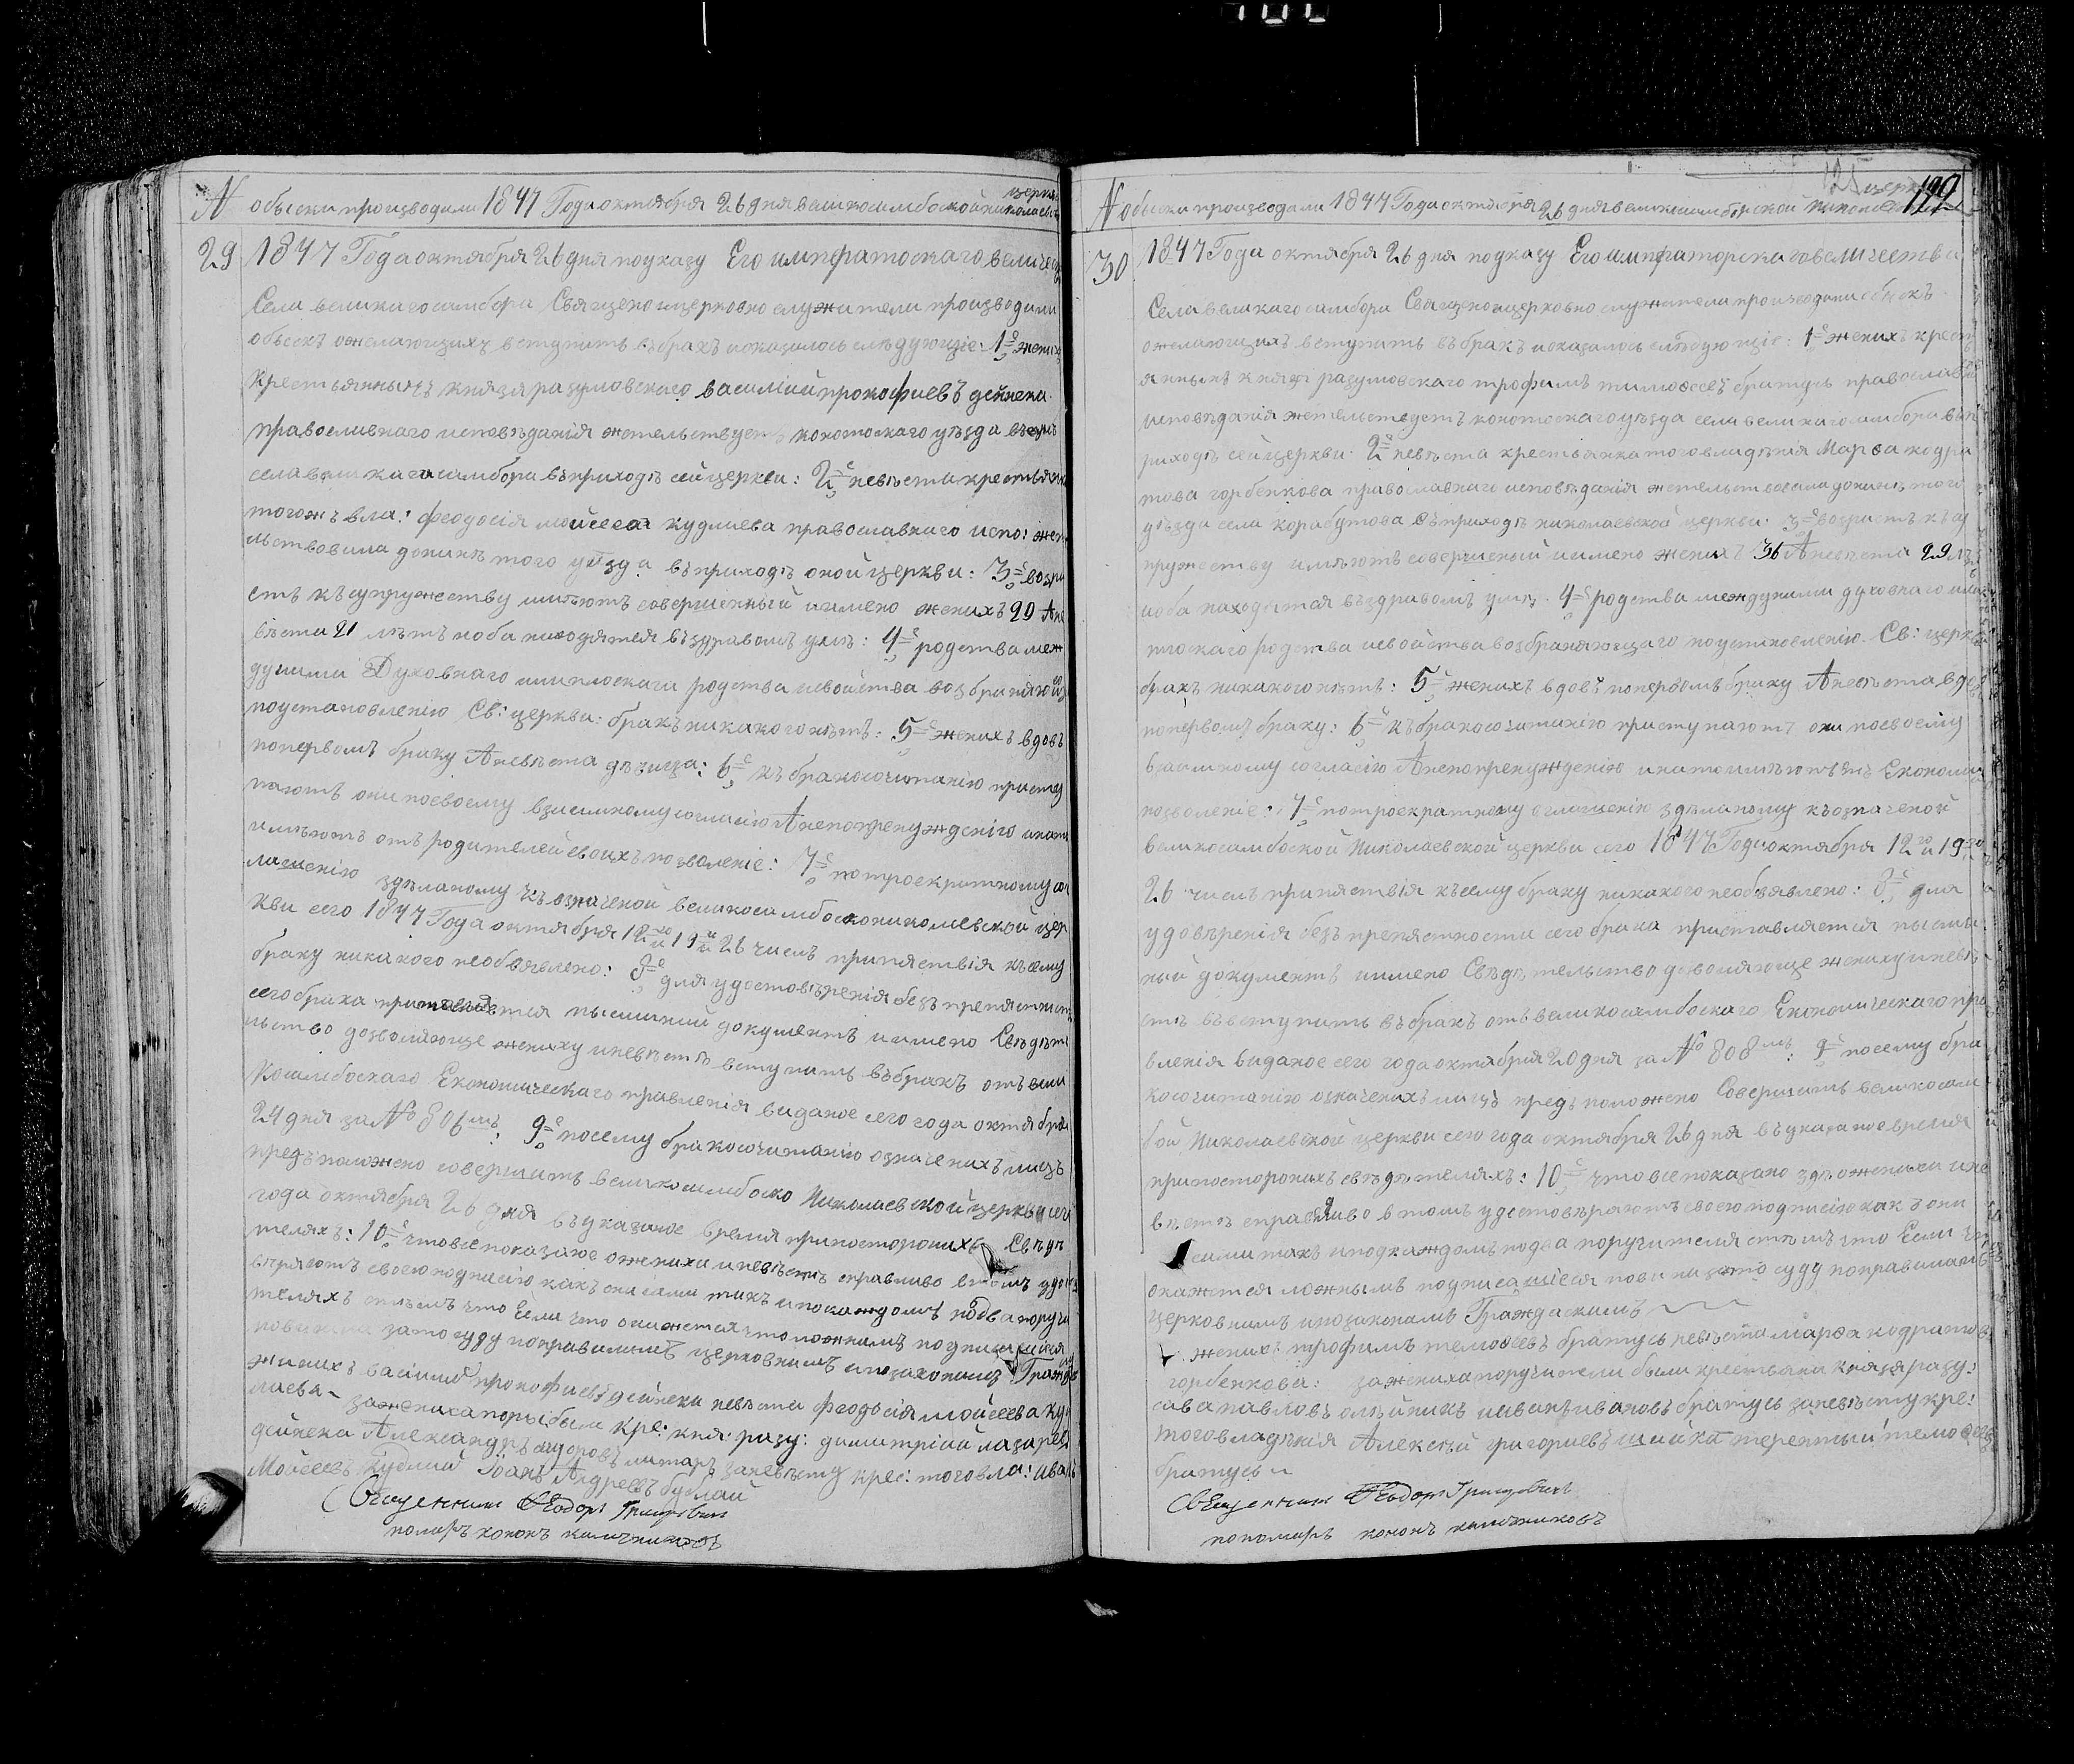 N обыски производили 1847 Года октября 26 дня великосамбоской николаевс церкв
29 1847 Года октября 26 дня поуказу Его императоскаго величест
Села великагосамбора Священоицерковно служители производили
обыскъ ожелающихъ вступить вбракъ иоказалось слѣдующіе: 1е жених
Крестьянинъ князя разумовскаго василий прокофиевъ дейнека
православнаго исповѣданія жительствует конотоскаго уѣзда
села великагосамбора въприходѣ сейцеркви: 2е невѣста крестьянк
тогожъ вла: феодосія мойсеева кудлаева православнаго испо: жет
льствовала донинѣ того уѣзда въприходѣ оной церкви: 3е возра
стъ къ супружеству имѣютъ совершенный имено женихъ 29 Ане
вѣста 21 лѣтъ иоба находятся въздравомъ умѣ: 4е родства меж
дуними Духовнаго илиплоскаго родства исвойства возбраняющ
поустановленію Св: церкви: бракъ никакого нѣтъ: 5е женихъ вдовъ
попервомъ браку Аневѣста дѣвица: 6е къ бракосочитанію присту
паютъ они посвоему взаимному согласію Анепопренужденію инато
имѣютъ отъ родителей своихъ позволеніе: 7е потроекратному ог
лашенію здѣланому къозначеной великосамбосконикола​евской цер
кви сего 1847 Года октября 12го 19го и 26 числъ припяствія късему
браку никакого необъявлено: 8е для удостовѣренія безъ препятност
сегобрака приставляется писминий документъ иимено Свѣдѣте
льство дозволяюще жениху иневѣстѣ вступить въбракъ отъ вели
Косамбоскаго Економическаго правленія виданое сего года октября
24 дня за No 806мъ: 9е посему бракосочитанію означенихъ лицъ
предположено совершить великосамбоско Николаевской церкви сего
года октября 26 дня въуказаное время припостороннихъ Свѣдѣ
теляхъ: 10е чтовсепоказаное оженихи иневѣстѣ справливо втомъ удос
вѣряютъ своеюподписію какъ они сами такъ ипокаждомъ подва поручи
теляхъ стѣмъ что Если что окажется что ложнимъ подписавшіеся
повинни зато суду поправиламъ церковнимъ ипозаконамъ Гражд
женихъ василий прокофиевъ дейнека невѣста феодосія мойсеева куд
лаева – зажениха поры: были кре: кня: разу: димитрий лазаревъ
дейнека Александръ литаръ заневѣсту крес: тоговла: иванъ
Мойсеевъ кудлай Іоанъ Андреевъ будлай
Священникъ Феодоръ Григоровичъ
помаръ кононъ калачниковъ
N обыски производили 1847 Года октября 26 дня великосамборской николаевской церкви 122
30 1847 Года октября 26 дня поуказу Его императорскаговеличества
Села великагосамбора Священоицерковно служители производили обыскъ
ожелающихъ вступить въбракъ иоказалось слѣдующіе: 1е женихъ крест
янинъ князя разумовскаго трофимъ тимофеевъ братусь православна
исповѣданія жительствуетъ конотоскаго уѣзда села великагосамбора въп
риходѣ сейцеркви. 2е невѣста крестьянка тоговладѣнія Марфа кодра
това горбенкова православнаго исповѣданія жительствовала донинѣ того
уѣзда села корабутова въприходѣ николаевской церкви: 3е возрастъ къ су
пружеству имѣютъ совершеный иимено женихъ 36 Аневѣста 29 лѣтъ
иоба находятся въздравомъ умѣ. 4е родства междуними духовнаго или
плоскаго родства исвойства возбраняющаго поустановленію Св: церкв
бракъ никакого нѣтъ: 5е женихъ вдовъ попервомъ браку Аневѣста вдова
попервомъ браку: 6е къбракосочитанію приступаютъ они посвоему
взаимному согласію Анепопренужденію инатоимѣютъ Економи
позволеніе: 7е потроекратному оглашенію здѣланому къозначеной
великосамбоской Николаевской церкви сего 1847 Года октября 12го и 19го
26 числъ припяствія късему браку никакого необъявлено: 8е для
удовѣренія безъ препятности сего брака приставляется писми
ний документъ иимено Свѣдѣтельство дозволяюще жениху иневѣ
стѣ въвступить въбракъ отъ великосамбоскаго Економическаго пра
вленія виданое сего года октября 20 дня за No 808мъ: 9е посему бра
косочитанію означенихъ лицъ предположено Совершить великосам
бой Николаевской церкви сего года октября 26 дня въуказаное время
припостороннихъ свѣдѣтеляхъ: 10е что все показано здѣ оженихи ине
вѣстѣ справливо втомъ удостовѣряютъ своею подписію какъ они
сами такъ иподкаждомъ подва поручителя стѣмъ что Если что
окажется ложнымъ подписавшіеся повинни зато суду поправиламъ
церковнимъ ипозаконамъ Граждаскимъ
женихъ трофимъ темофеевъ братусь невѣста марфа кодратов
горбенкова: зажениха поручители были крестьяна князя разу:
сава павловъ олѣйникъ иванъ ивановъ братусь заневѣсту кре:
тоговладѣнія Алексѣй григориевъ шийка терентый темофеевъ
братусь
Священникъ Феодоръ Григоровичъ
пономаръ кононъ калачниковъ